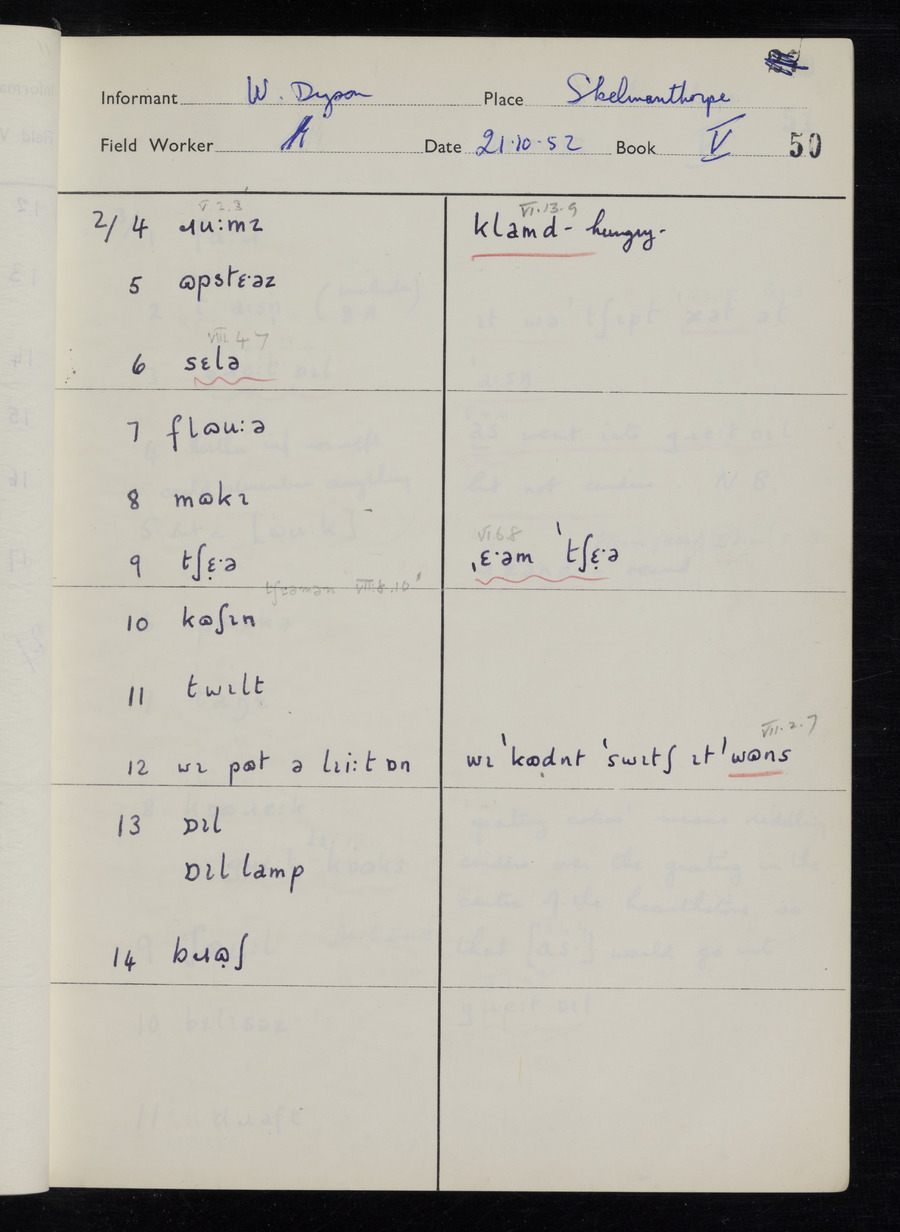 Informant W. Dyson Place Skelmanthorpe
Field Worker Date 21·10·52 Book V 50
V.2.3 VI.13.9
2/ 4 ɹuːmz klamd - hungry -
5 ɷpstɛ·əz
VIII 4 7
6 sɛlə
7 flɷuːə
8 mɷkɪ
VI 6 8
9 tʃɛ̣·ə ˌɛ·əm ˈtʃɛ̣·ə
tʃɪəmən VIII.8.10
10 kɷʃɪn
11 twɪlt
VII.2.7
12 wɪ pɷt ə lɪiːt ɒn wɪ ˈkɷdnt ˈswɪtʃ ɪt ˈwɷns
13 ɒɪl
ɒɪl lamp
14 bɹɷ̣ʃ